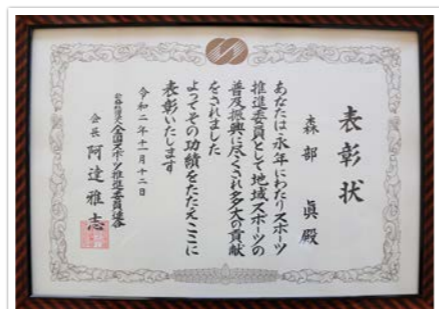 表彰状
森部 眞 殿
あなたは永年にわたりスポーツ
推進委員として地域スポーツの
普及振興に尽くされ多大の貢献
をされました
よってその功績をたたえここに
表彰いたします
令和二年十一月十二日
公益社団法人全国スポーツ推進委員連合
会長 阿達雅志